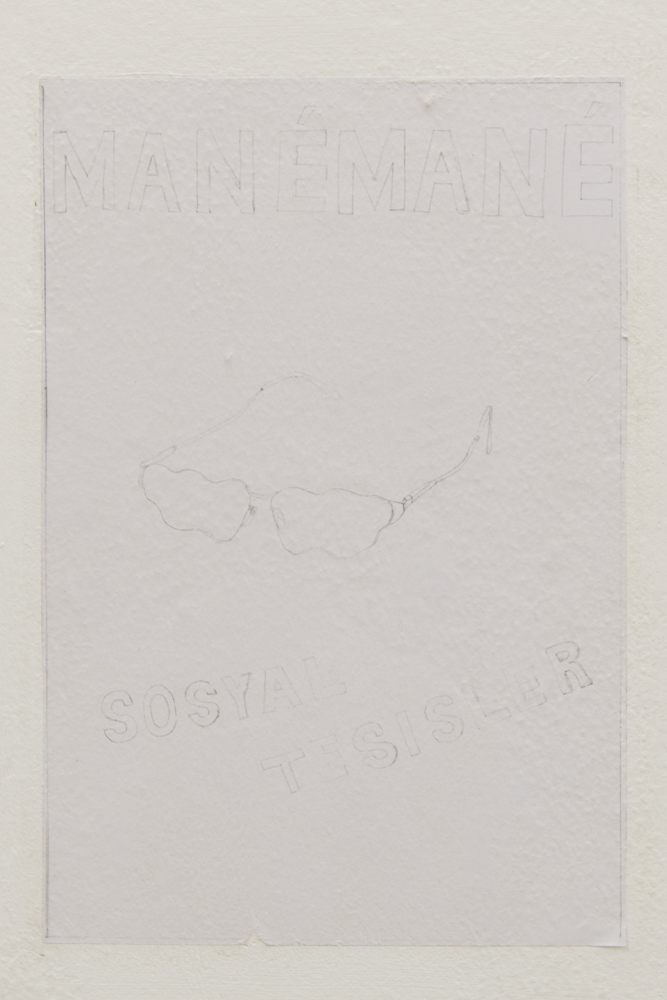 MANÉMANÉ
SOSYAL
TESISLER